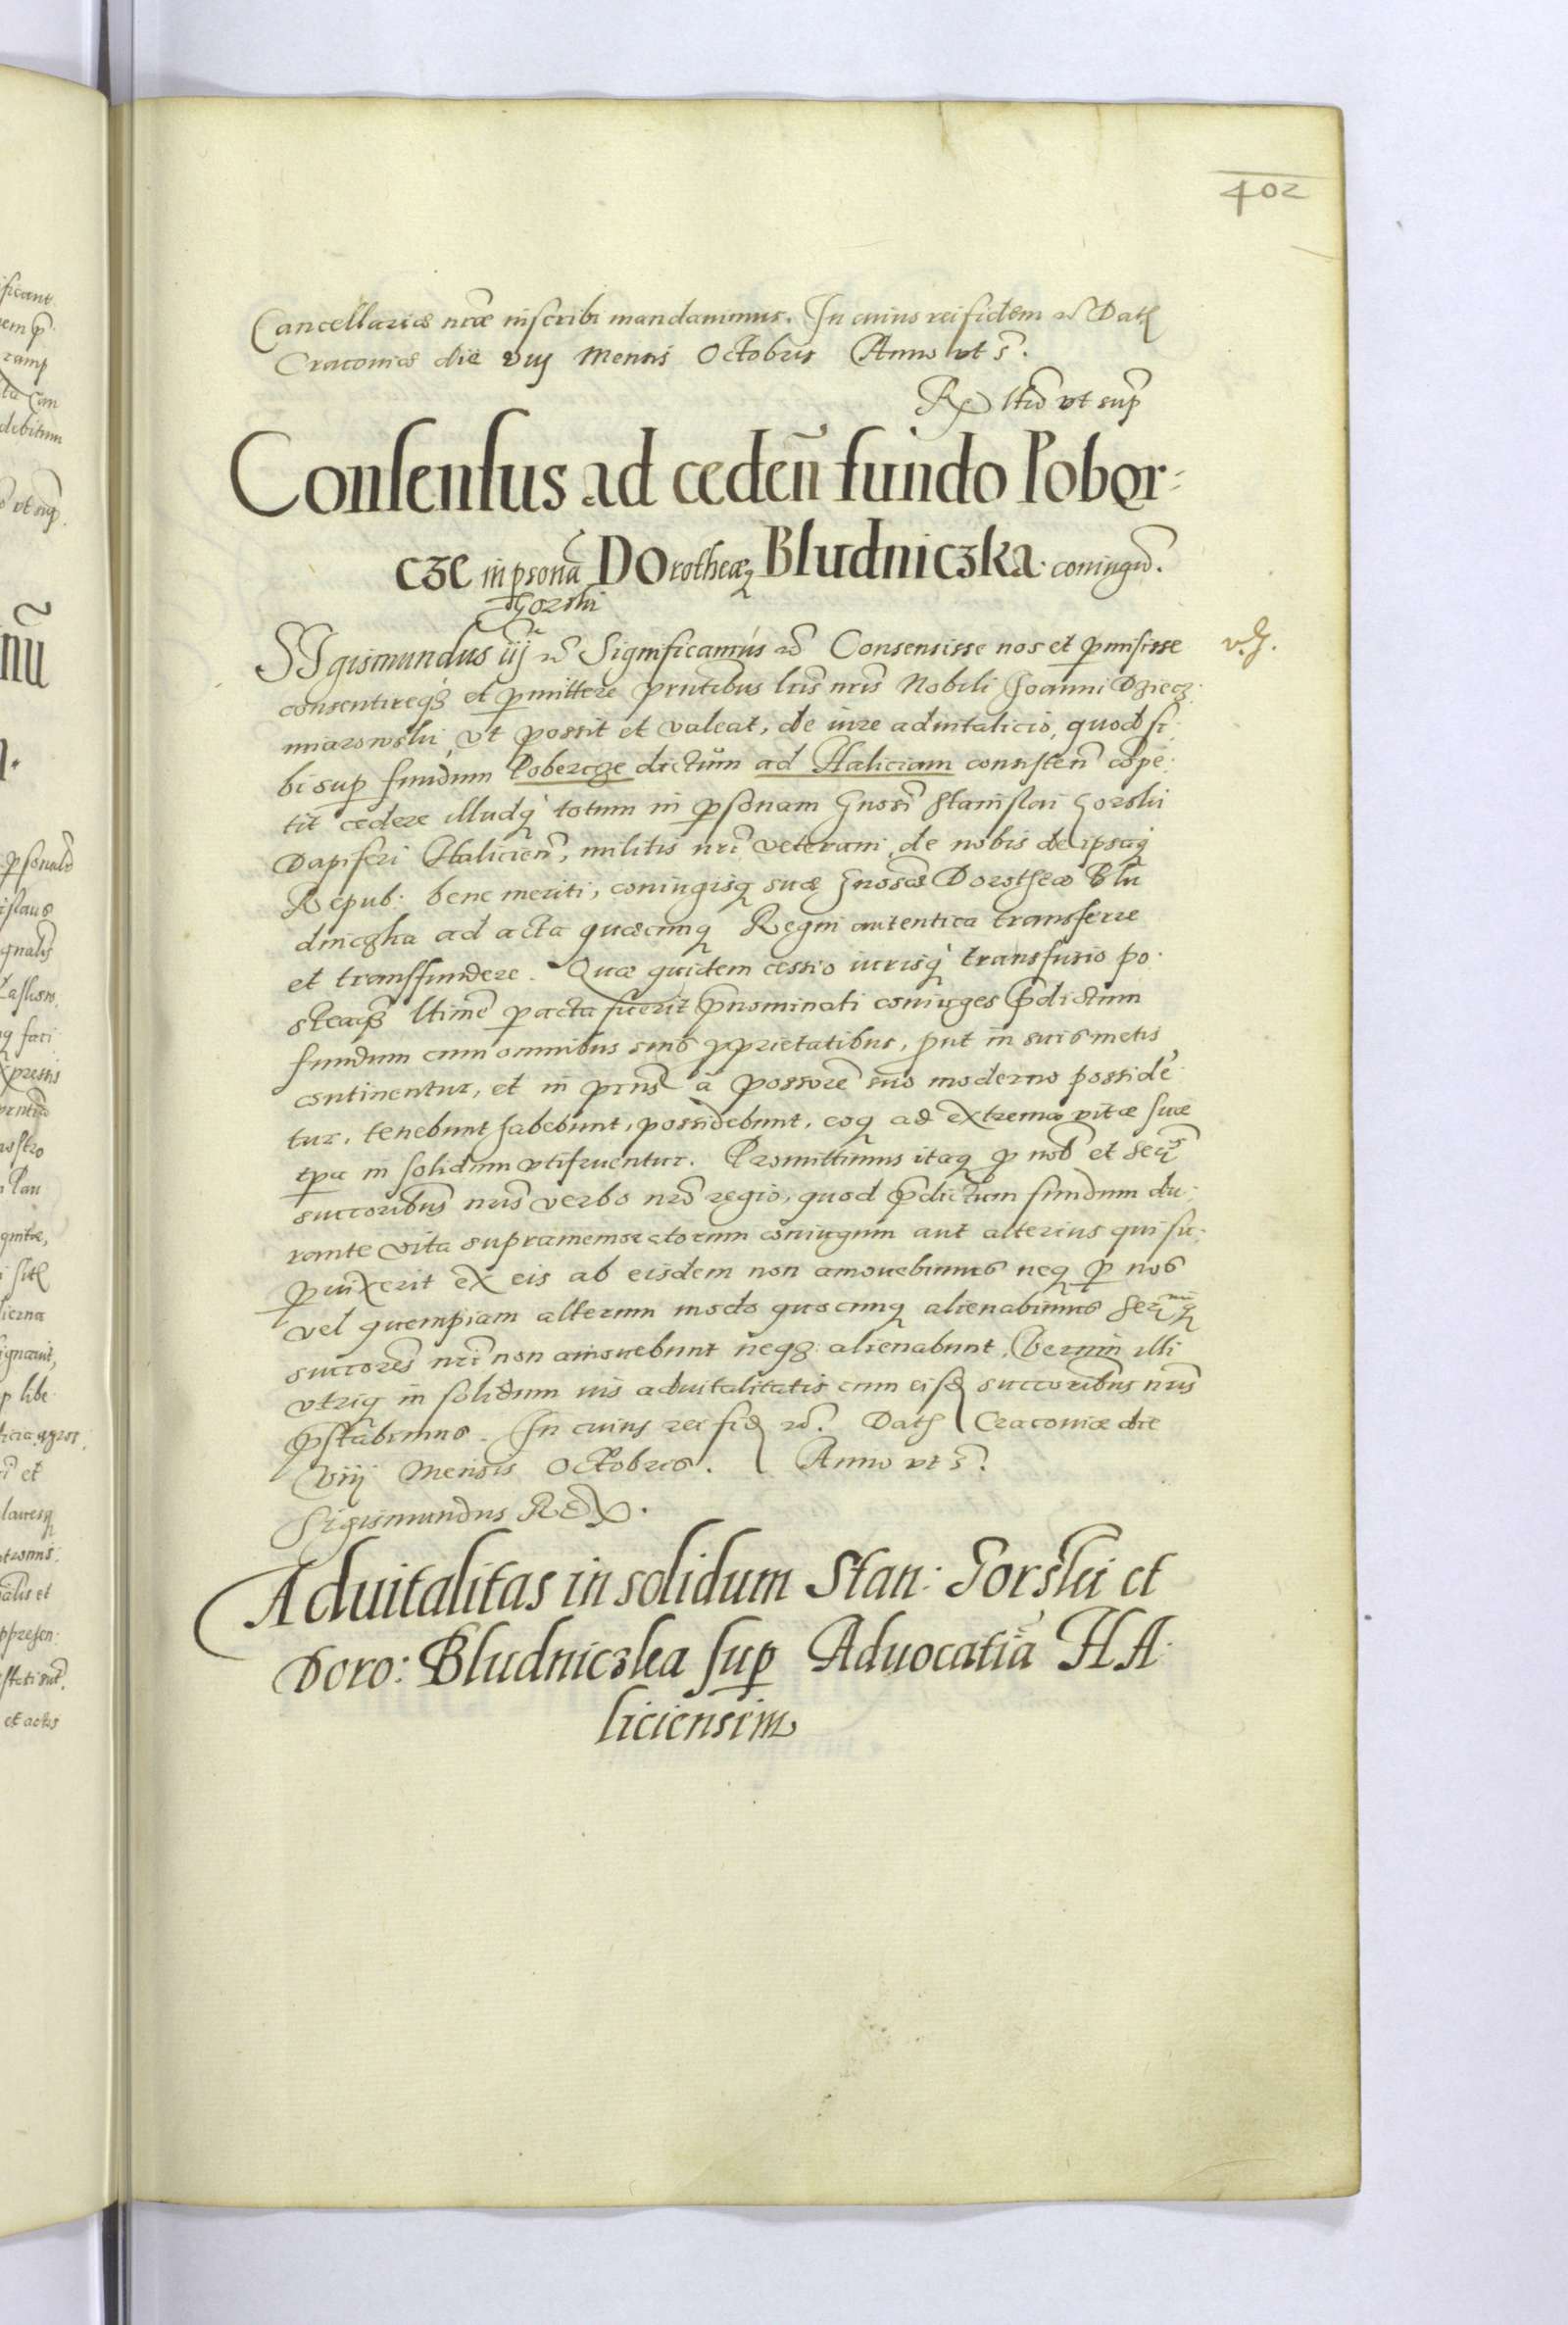 402
Cancellariæ nræ inscribi mandavimus. In cuius rei fidem etc Datū
Cracoviæ die viij Mensis Octobris Anno ut s.
Rō ltio ut sup
Consensus ad cedeñ fundo Pober-
cze in psonã DOrotheæ Bludniczka coniugū.
Gorski
SIgismundus iij etc Significamus etc Consensisse nos et pmisisse
v. H.
consentireqȝ et pmittere pntibus lris nris Nobili Joanni Dziecz
miarowski, ut possit et valeat, de iure advitalicio, quod si
bi sup fundum Pobercze dictum ad Haliciam consisteñ cõpe
tit cedere illudqȝ totum in psonam Gnosi Stanislai Gorski
Dapiferi Halicieñ, militis nri veterani, de nobis de ipsaqȝ
Repub: bene meriti, coniugisqȝ suæ Gnosæ Dorotheæ Blu
dniczka ad acta quæcunqȝ Regni autentica transferre
et transfundere. Quæ quidem cessio iurisqȝ transfusio po
steaqȝ ltime pacta fuerit pnominati coniuges pdictum
fundum cum omnibus suis pprietatibus, put in suis metis
continentur, et in pnš à possore suo moderno posside
tur, tenebunt habebunt, possidebunt, eoqȝ ad extrema vitæ suæ
tpa in solidum utifruentur. Promittimus itaqȝ p nob et Serš
succoribus nris verbo nro regio, quod pdictum fundum du
rante vita supramemoratorum coniugum aut alterius qui su
pvixerit ex eis ab eisdem non amovebimus neqȝ p nos
vel quempiam alterum modo quocunqȝ alienabimus Sermiqȝ
succores nri non amovebunt neqȝ alienabunt, Verum illi
utriqȝ in solidum ius advitalitatis cum eisd succoribus nris
pstabimus. In cuius rei fid etc. Datū Cracoviæ die
Viij Mensis Octobris. Anno ut s.
Sigismundus REX.
Advitalitas in solidum Stan: Gorski et
Doro: Bludniczka sup Advocatiã HA
liciensem